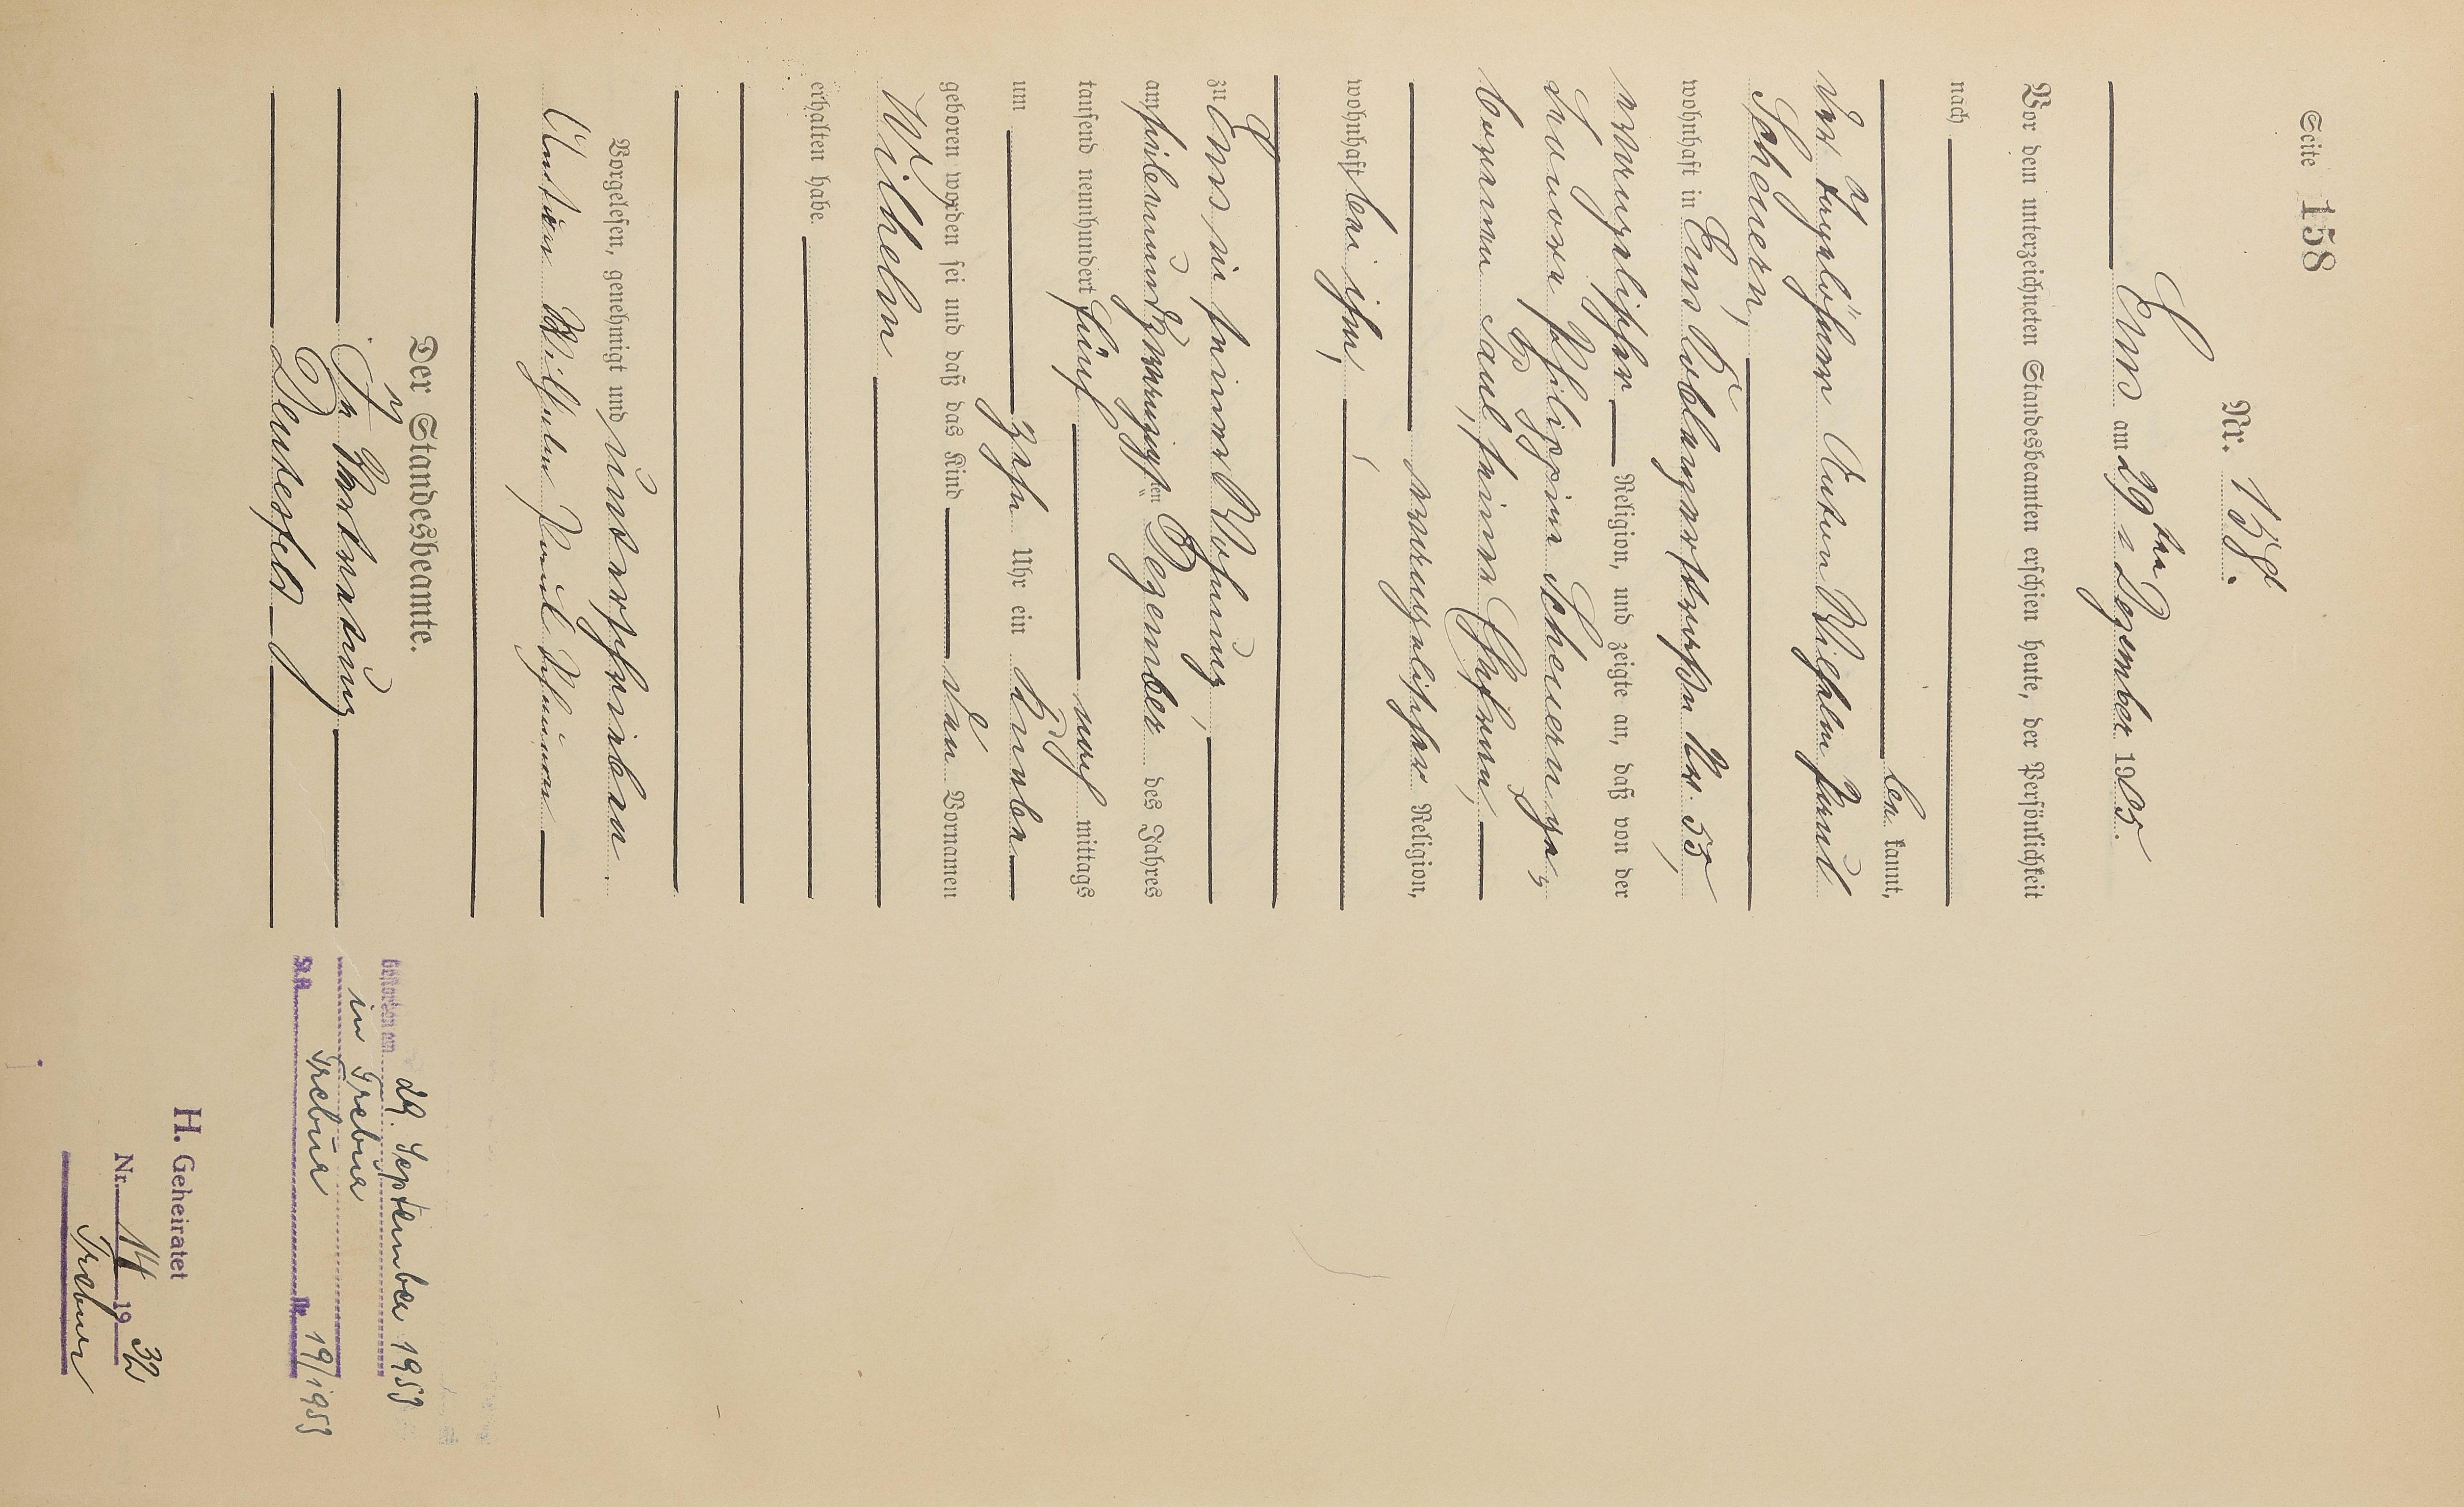 Seite 158
Nr. 158.
Ems am 29ten Dezember 1905.
Vor dem unterzeichneten Standesbeamten erschien heute, der Persönlichkeit
nach
be kannt,
der Tagelöhner Anton Wilhelm Paul
Scheuern,
wohnhaft in Ems Koblenzerstraße Nr. 55,
evangelischer Religion, und zeigte an, daß von der
Louore Philippine Scheuern ge„
borenen Paul, seiner Ehefrau,
evangelischer Religion,
wohnhaft bei ihm,
zu Ems in seiner Wohnung,
am siebenundzwanzigsten Dezember des Jahres
tausend neunhundert fünf nach mittags
um zehn Uhr ein Knabe
geboren worden sei und daß das Kind den Vornamen
Wilhelm
erhalten habe.
Vorgelesen, genehmigt und unterschrieben.
Anton Wilhelm Paul Scheuern
Der Standesbeamte.
In Vertretung
gestorben am 29. September 1959
in Trebur
St.A. Trebur Nr. 19/1959
H. Geheiratet
Nr. 14 1932
Trebur